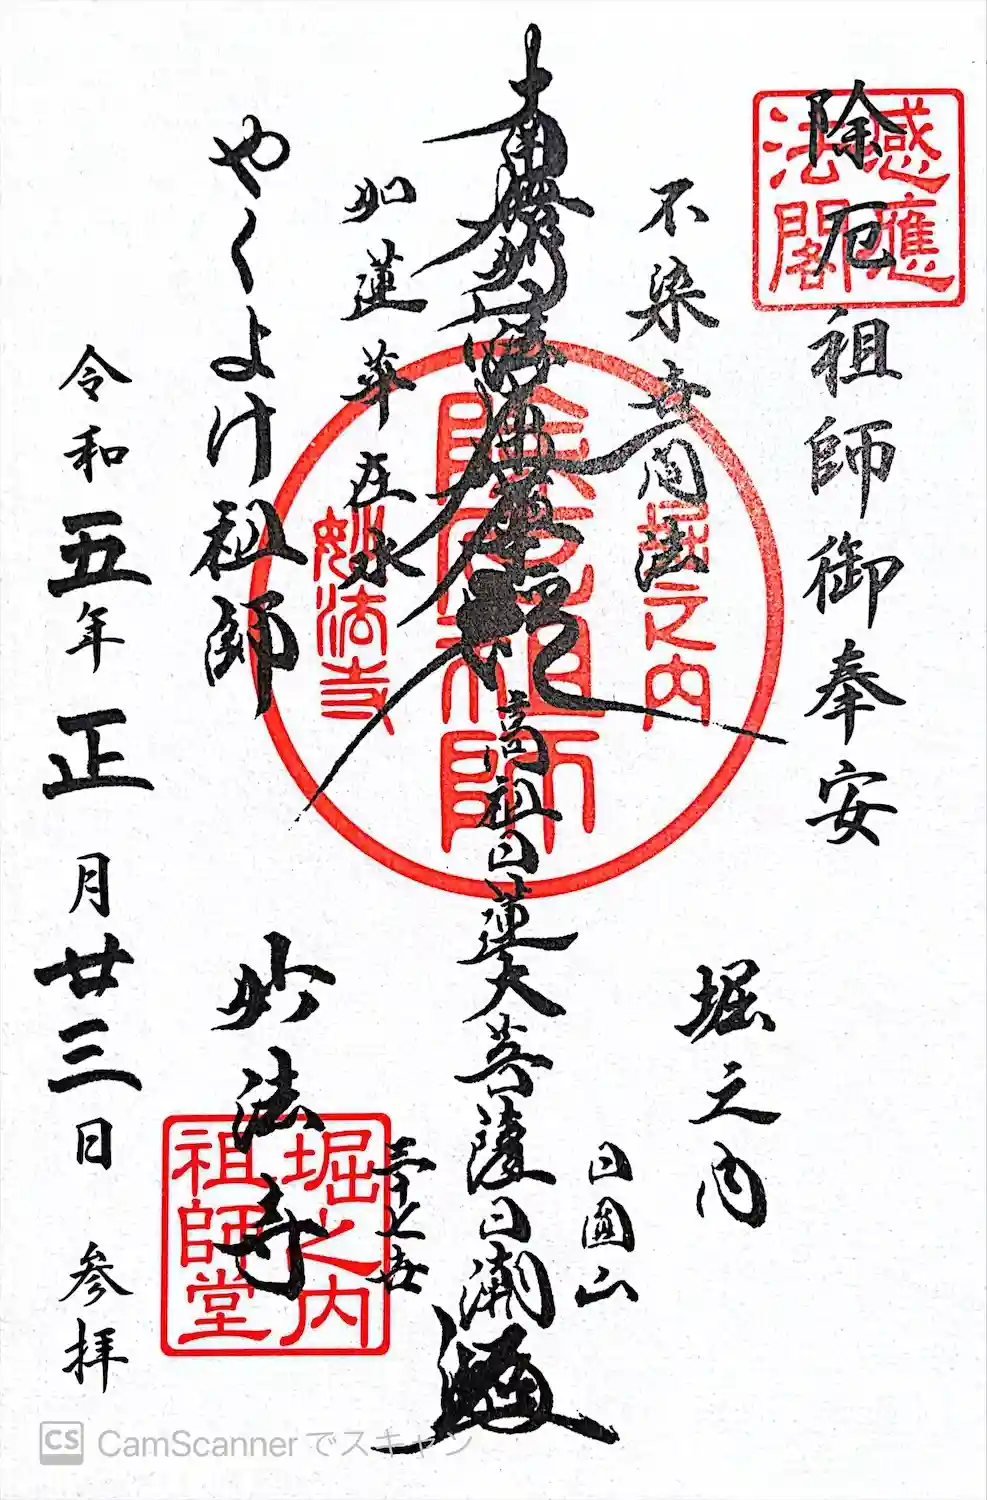 除厄祖師御奉安
感應
法閣
堀之内
不染世間法
日圓山
南無妙法蓮華経
高祖日蓮大菩薩
日潮
除厄祖師
堀之内
妙法寺
如蓮華在水
やくよけ祖師
妙法寺
堀之内
祖師堂
令和五年正月廿三日 参拝
CS CamScannerでスキャン